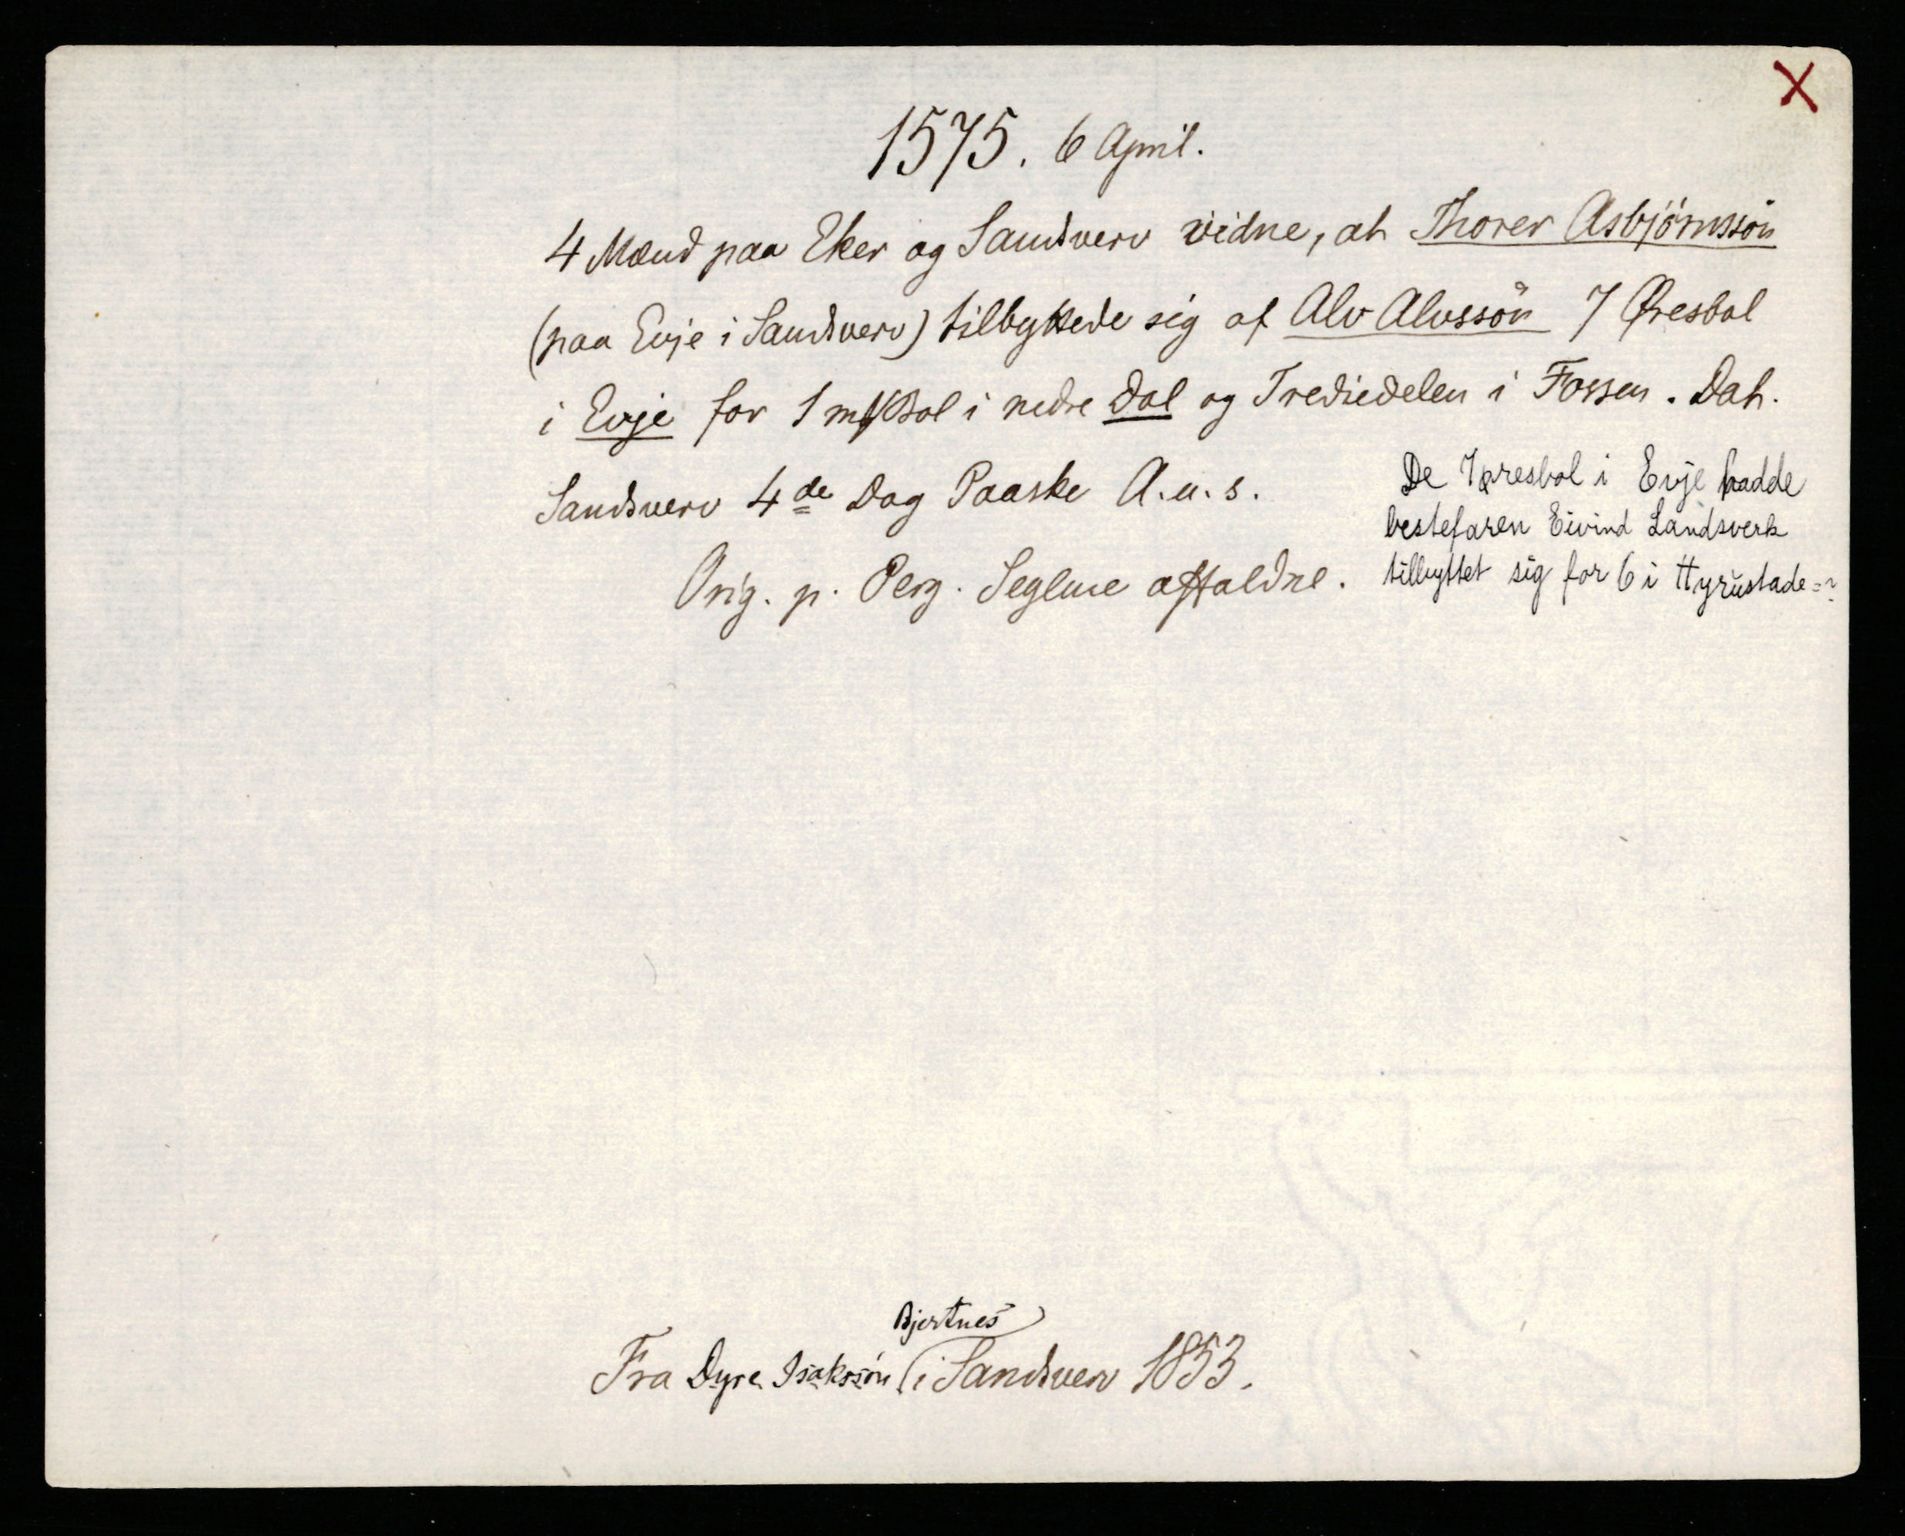 X
1575. 6 April.
4 Mænd paa Eker og Sandsverv vidne, at Thorer Asbjörnssön
(paa Evje i Sandsverv) tilbyttede sig af Alv Alvssön 7 Øresbol
i Evje for 1 mkBol i nedre Dal og Trediedelen i Fossen. Dat.
Sandsverv 4de Dag Paaske A.u.s.
Orig. p. Perg. Seglene affaldne.
De 7 øresbol i Evje hadde
bestefaren Eivind Landsverk
tilbyttet sig for 6 i Hyrustade=?
Bjertnes
Fra Dyre Isakssön i Sandsverv 1853.